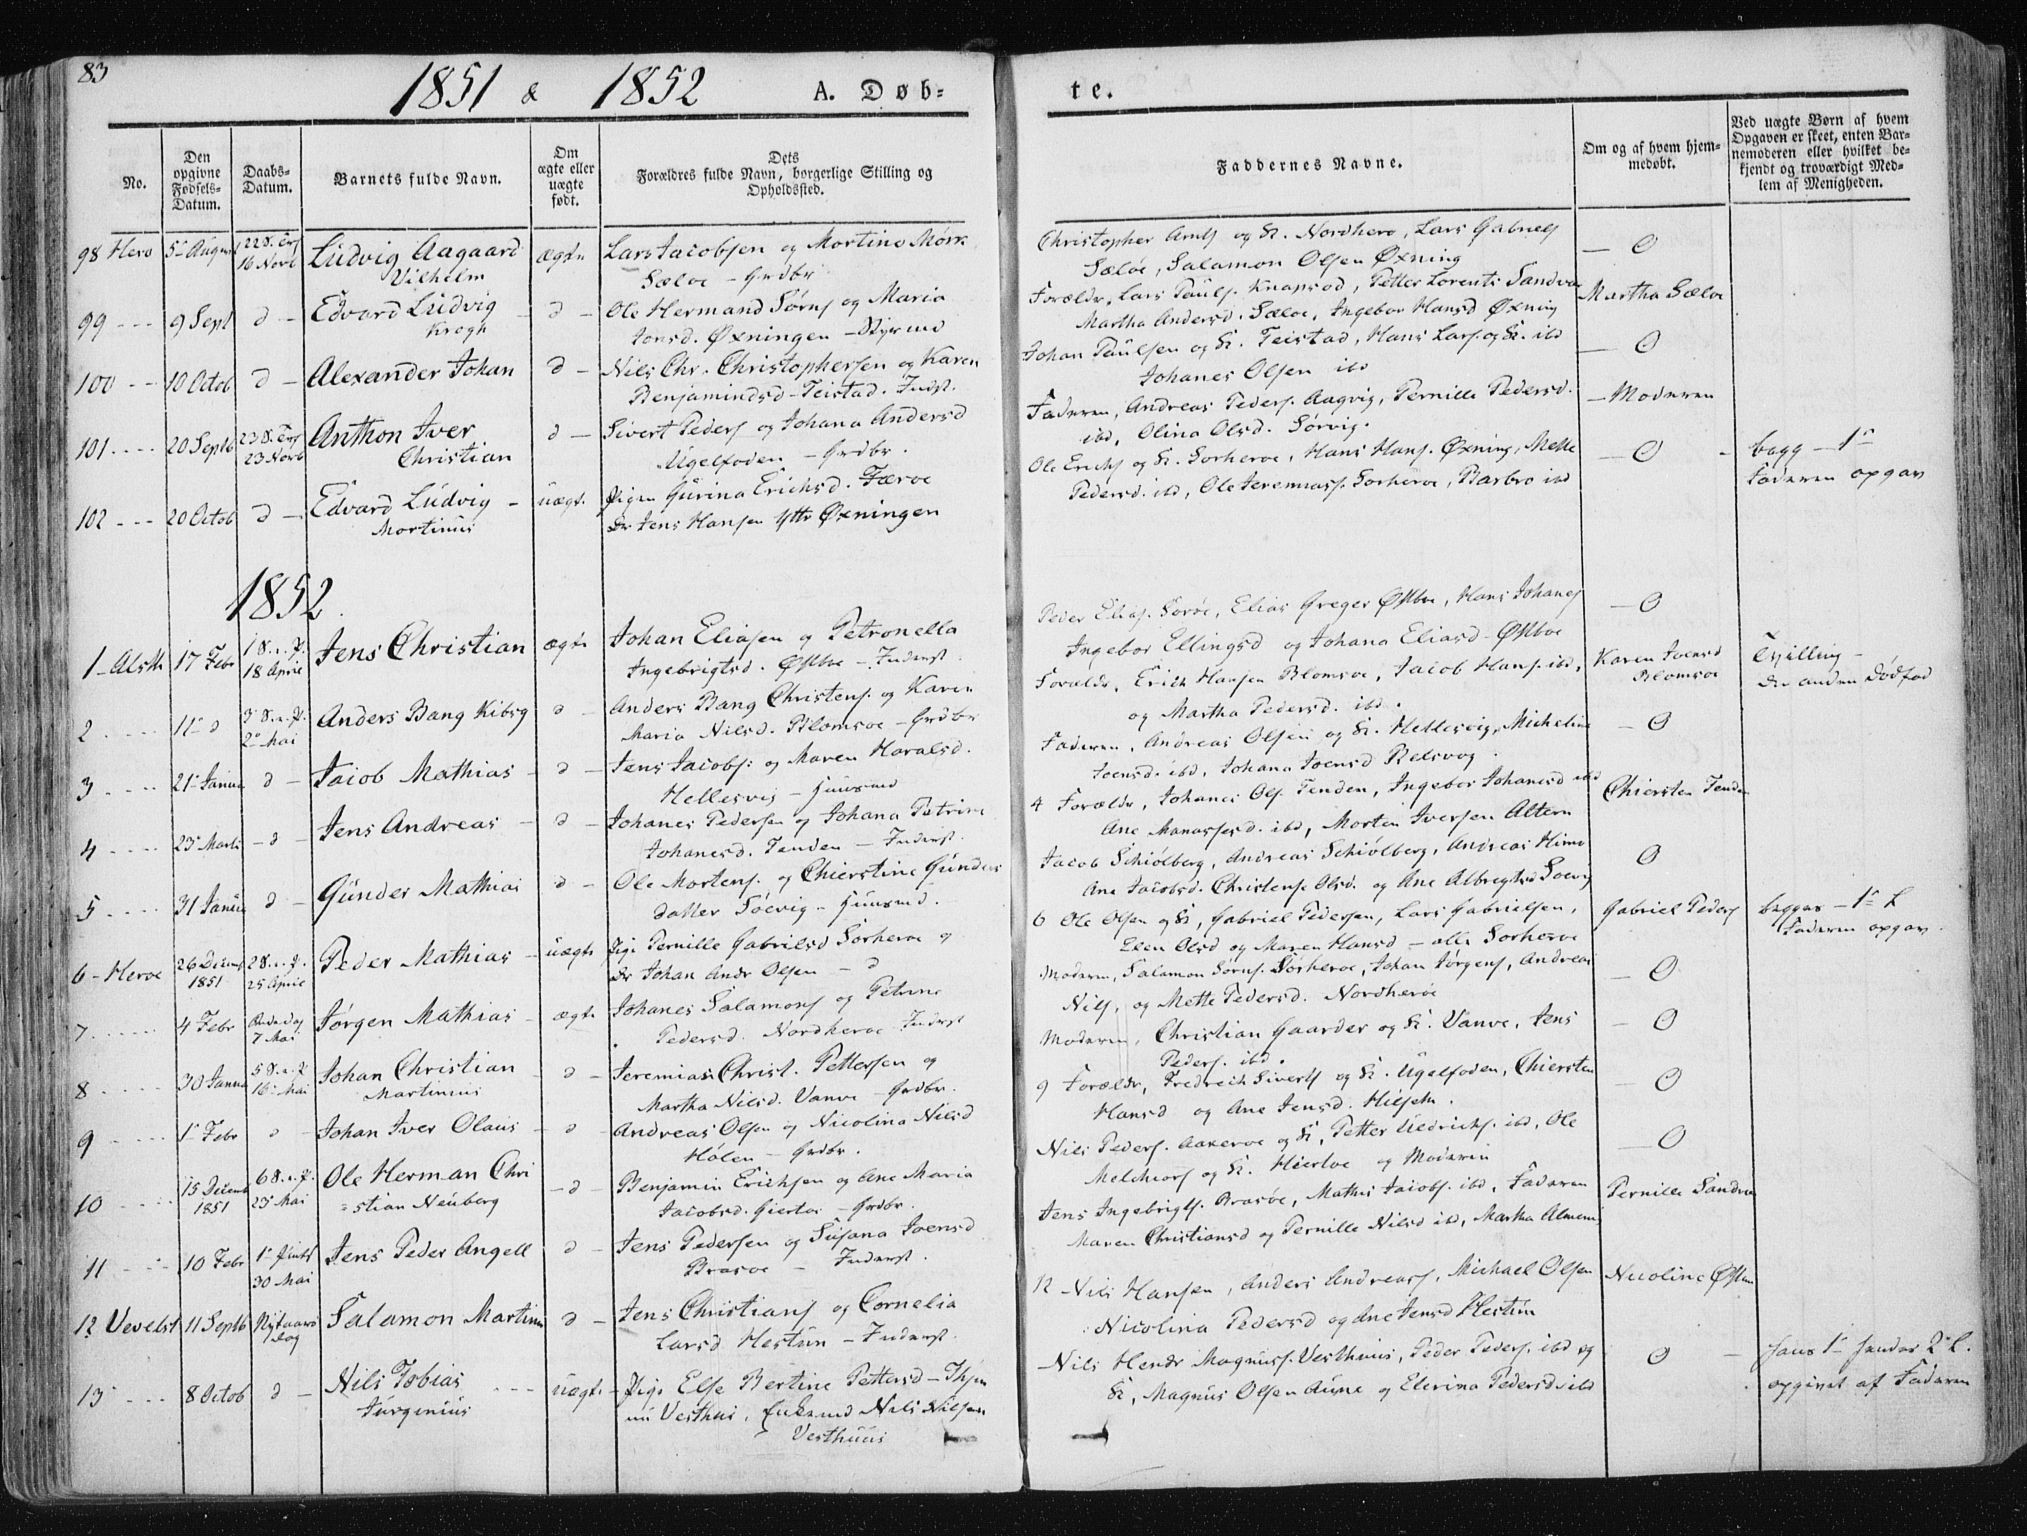 83
1851 & 1852 A. Døb= te.
No.
Den opgivne Fødsels-Datum.
Daabs-Datum.
Barnets fulde Navn.
Om ægte eller uægte født.
Dets Forældres fulde Navn, borgerlige Stilling og Opholdssted.
Faddernes Navne.
Om og af hvem hjemmedøbt.
Ved uægte Børn af hvem Opgaven er skeet, enten Barnemoderen eller hvilket bekjendt og troværdigt Medlem af Menigheden.
98 Herø 5 August 16 Novb Ludvig Aagaard ægte Lars Jacobsen og Mortine Mørk
Vilhelm Sæloe - Grdbr
Christopher og K. Nordherø, Lars Gabriels - O
Sæløe, Salamon Olsen Øxning
99 - - - 9 Sept d - Edvard Ludvig - d - Ole Hermand Sørns og Maria
Krogh Jonsd. Øxningen - Styrmd
Forældr, Lars Pauls. Knapsad, Petter Lorents Sandvær Martha Sæloe
Martha Andersd. Sæloe, Ingebor Hansd Øxning
100 - - 10 Octob d - Alexander Johan d - Nils Chr. Christophersen og Karen
Benjamindsd - Teistad. Inderst.
Johan Paulsen og K. Teistad, Hans Lars. og K. ibd - O
Johanes Olsen ibd
101 - - - 20 Septb 23 Novb Anthon Iver d - Sivert Peders og Johana Andersd
Christian Ugelfoden - Grdbr.
Faderen, Andreas Peders. Aagvig, Pernille Pedersd. - Moderen
ibd, Olina Olsd. Sørvig.
102 - - - 20 Octob d - Edvard Ludvig - uægt. Pigen Gurina Erichsd. Færoe
Mortinus Jens Hansen Yttr Øxningen
Ole Erichs og K. Sorheroe, Hans Hans. Øxning, Mette - O - begg - 1'
Pedersd. ibd, Ole Jeremias. Sorheroe, Barbro ibd Faderen opgav
1852.
1 - Alsth 17 Febr 18 Aprie Jens Christian ægte Johan Eliasen og Petronella
Ingebrigtsd. Østboe - Inderst.
Peder Elias. Sorøe, Elias Greger Østboe, Hans Johanes - O
Ingebor Ellingsd og Johana Eliasd Østboe
2 - - - - 11' d 2' Mai Anders Bang Kibsg d - Anders Bang Christens. og Karen
Maria Nilsd. Blomsoe - Grdbr
Forældr, Erich Hansen Blomsøe, Jacob Hans. ibd, Karen Joensd Tvilling -
og Martha Pedersd. ibd. Blomsøe den anden Dødfød
3 - - - - 21' Janua d - Jacob Mathias - d - Jens Jacobs: og Maren Haralsd.
Hellesvig - Huusmd
Faderen, Andreas Olsen og K. Hellesvig, Micheline - O
Joensd. ibd, Johana Joensd Relsvog.
4 - - - - 23' Marts - d - Jens Andreas - - d - Johanes Pedersen og Johana Petrine
Johanesd. Tenden - Inderst.
4 Forældr, Johanes Ols. Tenden, Ingebor Johanesd ibd Chiersten Tenden
Ane Manassesd. ibd, Morten Iversen Altern
5 - - - - 31 Janua d - Gunder Mathias d - Ole Mortens. og Chierstine Gunders
datter Søevig - Huusmd.
Jacob Schiølberg, Andreas Schiølberg, Andreas O
Ane Jacobsd. Christense Olsd. og Ane Albregtsd Soevig
6 - Heroe 26 Decemb 1851 25 Aprie Peder Mathias - uægte Pige Pernille Gabrilsd Sorheroe og
Johan Andr Olsen - d
6 Ole Olsen og K, Gabriel Pedersen, Lars Gabrielsen, Gabriel Peders begges - 1' L
Elen Olsd og Maren Hansd - alle Sorheroe Faderen opgav.
7. - - - - 4 Febr 7 Mai Jørgen Mathias - ægte Johanes Salamons og Petrine
Pedersd. Nordheroe Inderst
Moderen, Salamon Sorns. Sorheroe, Johan Jørgens, Andreas - O
Nils, og Mette Pedersd. Nordherøe
8 - - - - 30 Janua 16' Mai Johan Christian - d - Jeremias Christ. Pettersen og
Martinius Martha Nilsd. Vanve - Grdbr.
Moderen, Christian Gaarder og K. Vanve, Jens - O
Peders. ibd.
9 - - - - 1' Febr d - Johan Iver Olaus - d - Andreas Olsen og Nicolina Nilsd
Holen - Grdbr.
9 Forældr, Fredrich Siverts og K. Ugelfoden, Chiersten O
Hansd og Ane Jensd.
10 - - - - 15 Decemb 1851 23 Mai Ole Herman Chri - d - Benjamin Erichsen og Ane Maria
=stian Neuberg Jacobsd. - Grdbr.
Nils Peders. Aakeroe og K, Petter ibd, Ole - O
Melchiors og K. og Moderen
11 - - - - 10 Febr 30 Mai Jens Peder Angell d - Jens Pedersen og Susana Joensd
Brasoe - Inderst.
Jens Ingebrigts. Brasøe, Mathis Jacobs. ibd, Faderen Pernille
Maren Christiansd og Pernille Nilsd ibd, Martha
12 Vevelst 11 Septb Nytaars dag Salamon Martinus d - Jens Christians og Cornelia
Larsd Hestun - Inderst.
12 Nils Hansen, Anders Andreass, Michael Olsen Nicoline
Nicolina Pedersd og Ane Jensd Hestun
13 - - - 8 Octob d - Nils Tobias - - - uægte - Pige Else Bertine Pettersd
Jurginius Vesthus, Nils Nilsen
Vesthuus
Nils Hendr Magnuss. Vesthuus, Peder Peders. ibd og O - hans 1' hendes 2' L.
K, Magnus Olsen og Elerina Pedersd ibd opgivet af Faderen